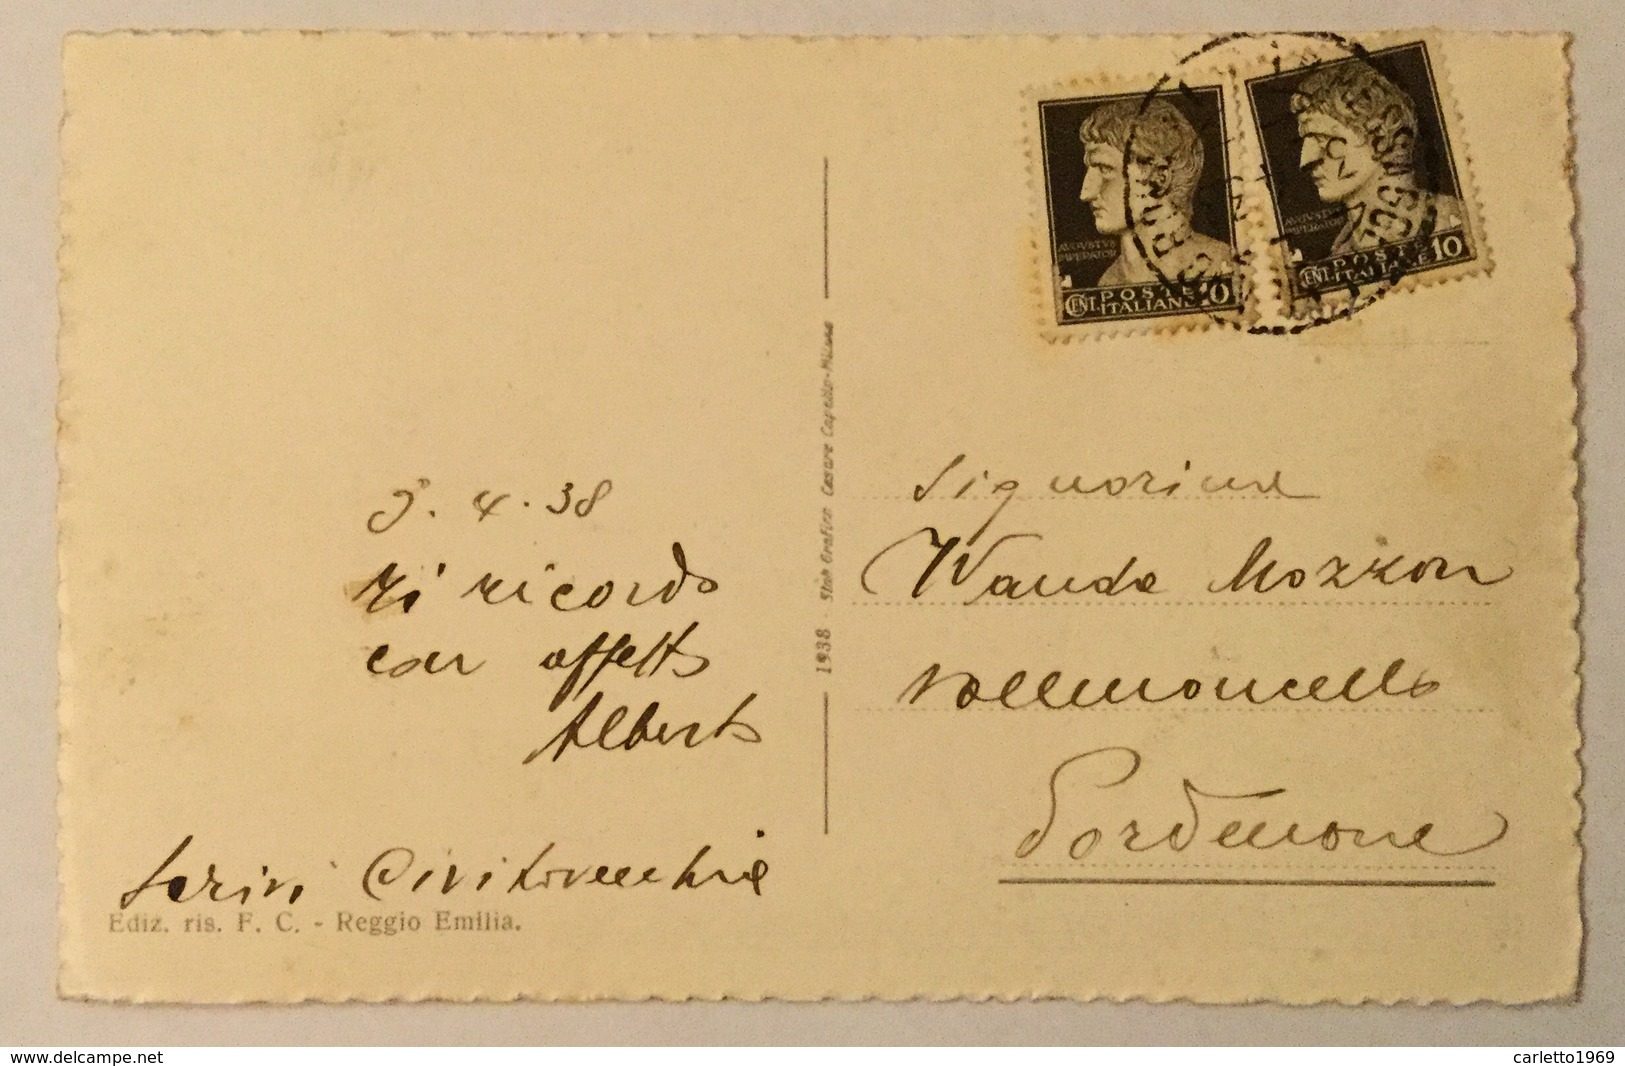 AVGVSTVS
IMPERATOR
CENT. POSTE
ITALIANE 10
AVGVSTVS
IMPERATOR
CENT. POSTE 10
ITALIANE
4.38
Ti ricordo
con affetto
Alberto
Scrivi Civitavecchia
Ediz. ris. F. C. - Reggio Emilia.
1938 Stab Grafico Cesare Capello-Milano
Signorina
Wanda Mozzon
Vallenoncello
Pordenone
www.delcampe.net
carletto1969